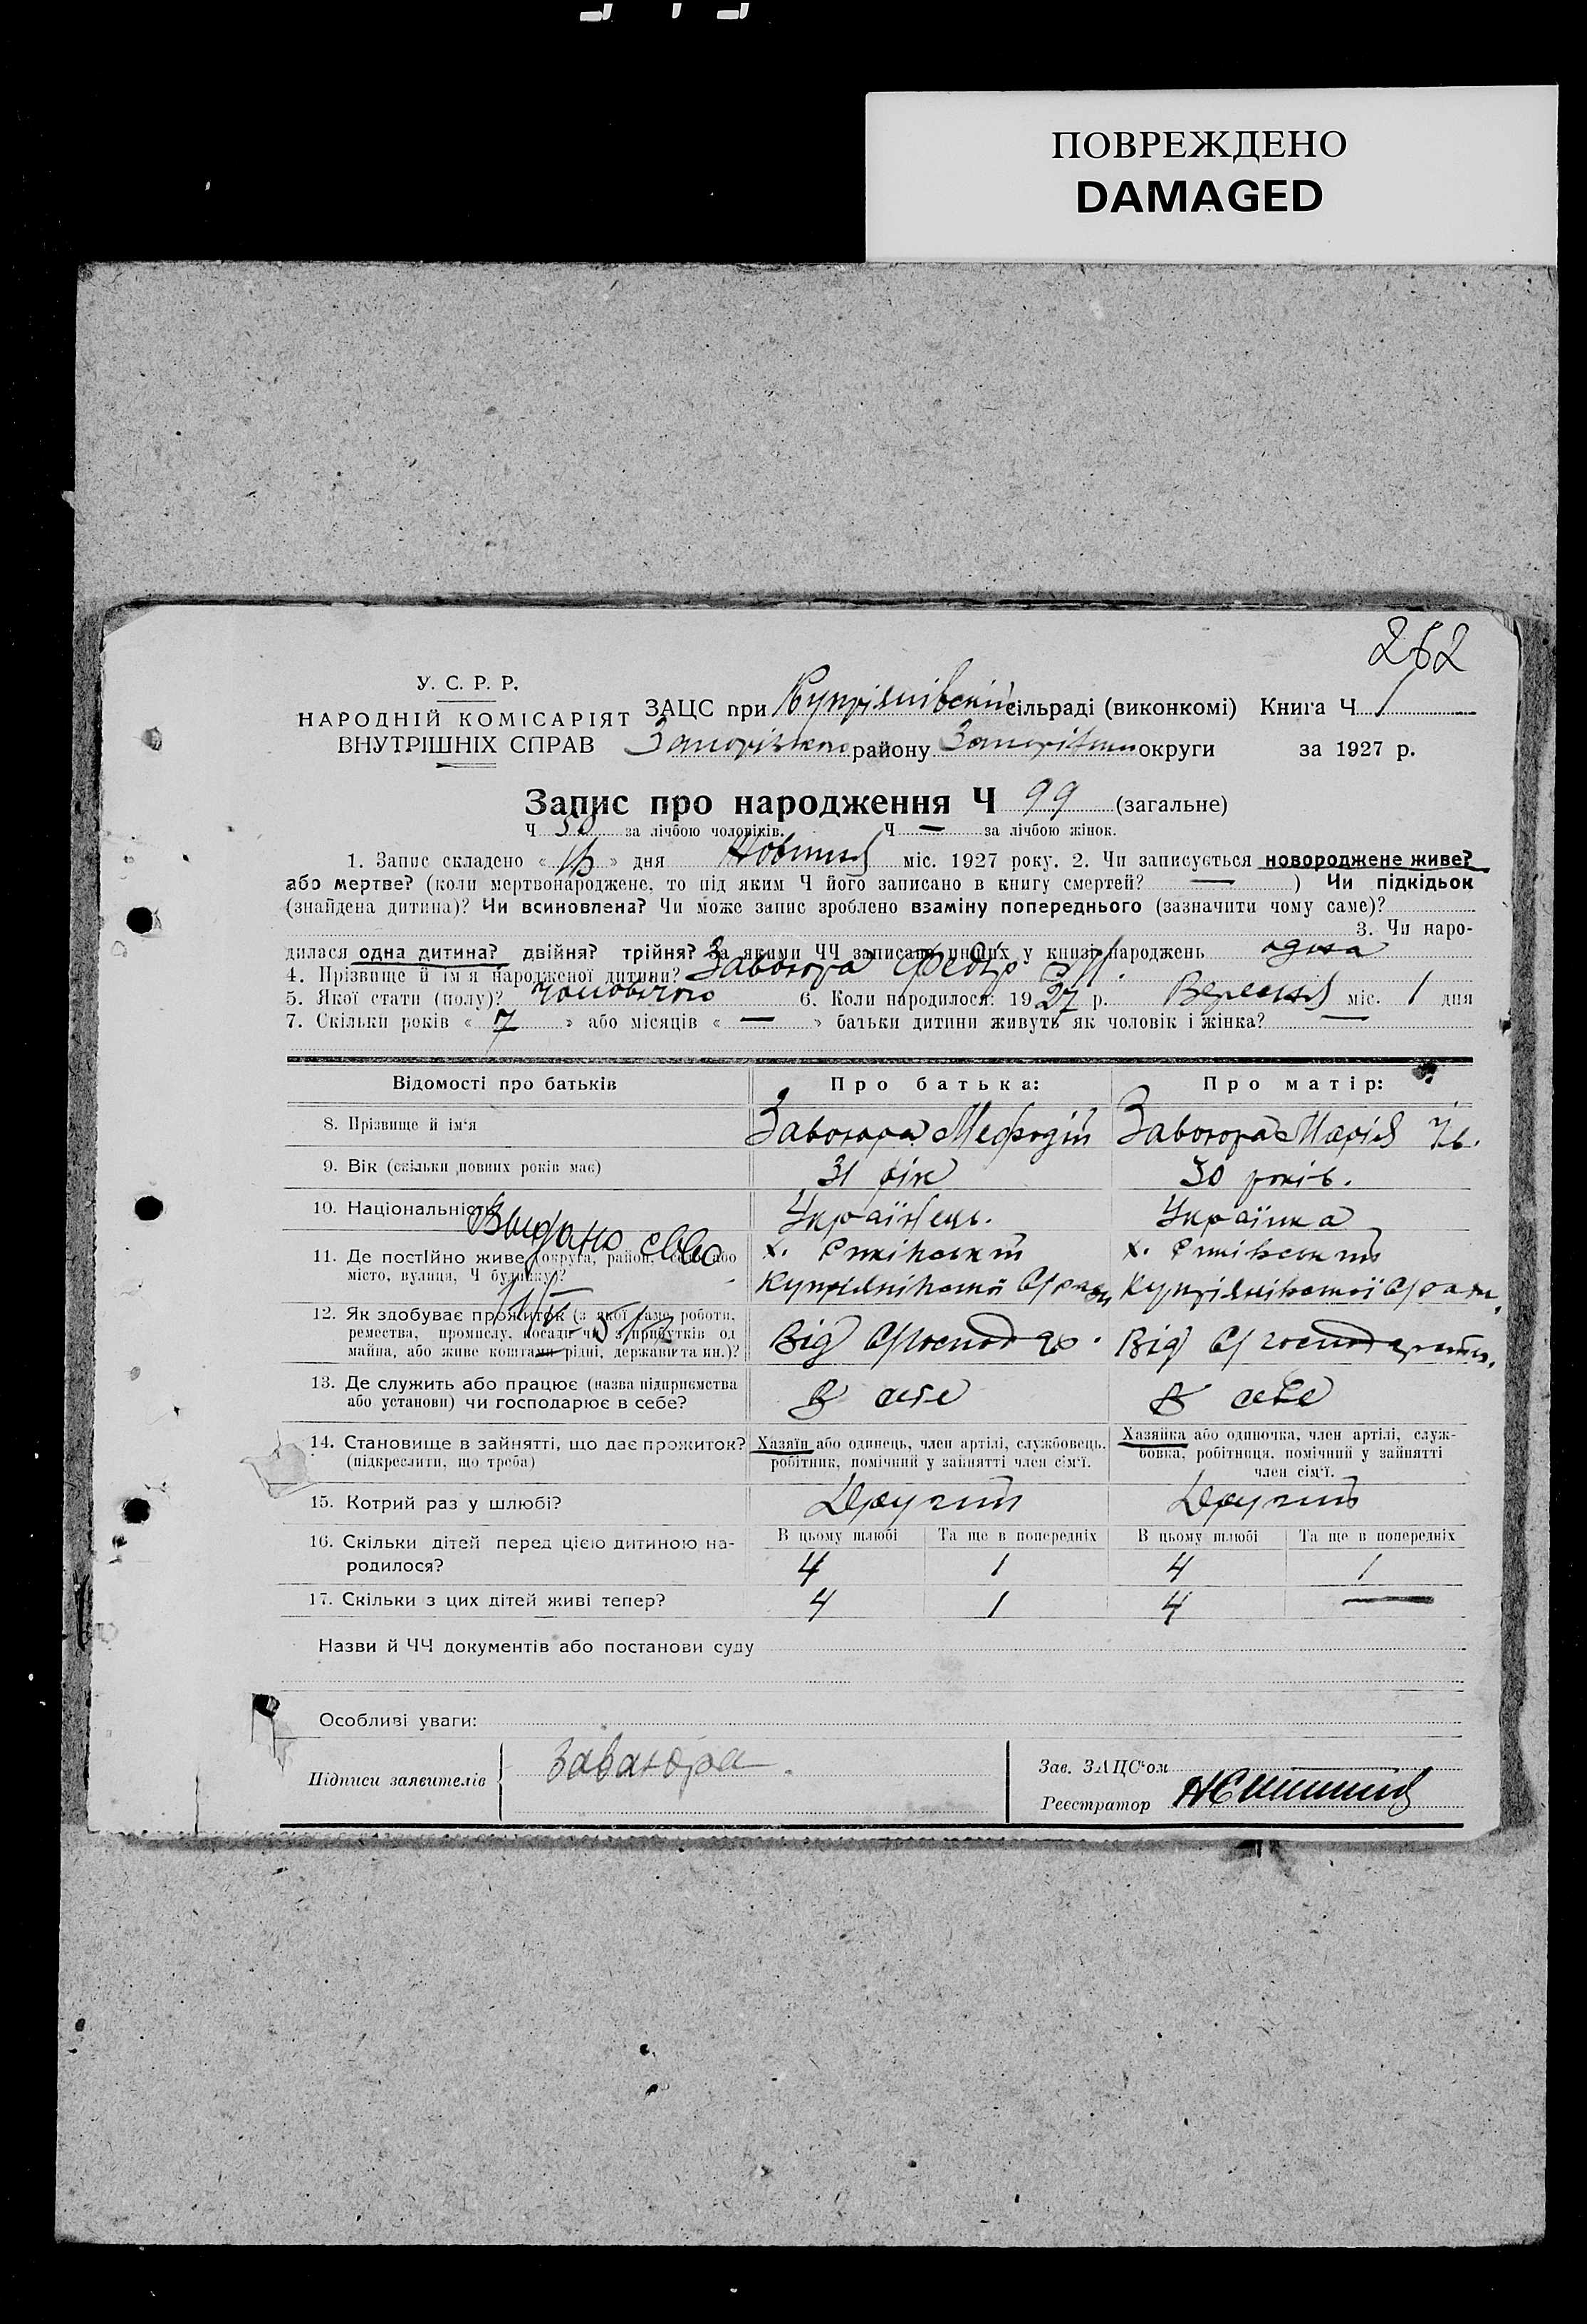 ПОВРЕЖДЕНО
DAMAGED
262
У. С. Р. Р.
НАРОДНІЙ КОМІСАРІЯТ
ВНУТРІШНІХ СПРАВ
ЗАЦС при Купріянівській сільраді (виконкомі) Книга Ч 1
Запорізького району Запорізької округи за 1927 р.
Запис про народження Ч 99 (загальне)
Ч 50 за лічбою чоловіків. Ч — за лічбою жінок.
1. Запис складено « » дня міс. 1927 року. 2. Чи записується новороджене живе?
або мертве? (коли мертвонароджене, то під яким Ч його записано в книгу смертей? — ) Чи підкідьок
(знайдена дитина)? Чи всиновлена? Чи може запис зроблено взаміну попереднього (зазначити чому саме)?
3. Чи наро-
дилася одна дитина? двійня? трійня? За якими ЧЧ записано инших у книзі народжень одна
4. Прізвище й ім'я народженої дитини? Завогора Федір М.
5. Якої стати (полу)? чоловічого 6. Коли народилося: 1927 р. Вересня міс. 1 дня
7. Скільки років « 7 » або місяців « — » батьки дитини живуть як чоловік і жінка? —
Відомості про батьків
Про батька:
Про матір:
8. Прізвище й ім'я
Завогора Мефодій
Завогора Марія Ів.
9. Вік (скільки повних років має)
31 рік
30 років.
10. Національність
Українець.
Українка
Видано
11. Де постійно живе (округа, район, село або
місто, вулиця, Ч будинку)?
х.
Купріянівської С/ради
х.
Купріянівської С/ради
12. Як здобуває прожиток (з якої саме роботи,
ремества, промислу, посади чи з прибутків од
майна, або живе коштами рідні, держави та ин.)?
Від С/господар.
Від С/господарства.
13. Де служить або працює (назва підприємства
або установи) чи господарює в себе?
В себе
В себе
14. Становище в зайнятті, що дає прожиток?
(підкреслити, що треба)
Хазяїн або одинець, член артілі, службовець.
робітник, помічний у зайнятті член сім'ї.
Хазяйка або одиночка, член артілі, служ-
бовка, робітниця, помічний у зайнятті
член сім'ї.
15. Котрий раз у шлюбі?
Другий
Другий
16. Скільки дітей перед цією дитиною на-
родилося?
В цьому шлюбі Та ще в попередніх В цьому шлюбі Та ще в попередніх
4 1 4 1
17. Скільки з цих дітей живі тепер?
4 1 4 —
Назви й ЧЧ документів або постанови суду
Особливі уваги:
Підписи заявителів
Завагора
Зав. ЗАЦС'ом
Реєстратор